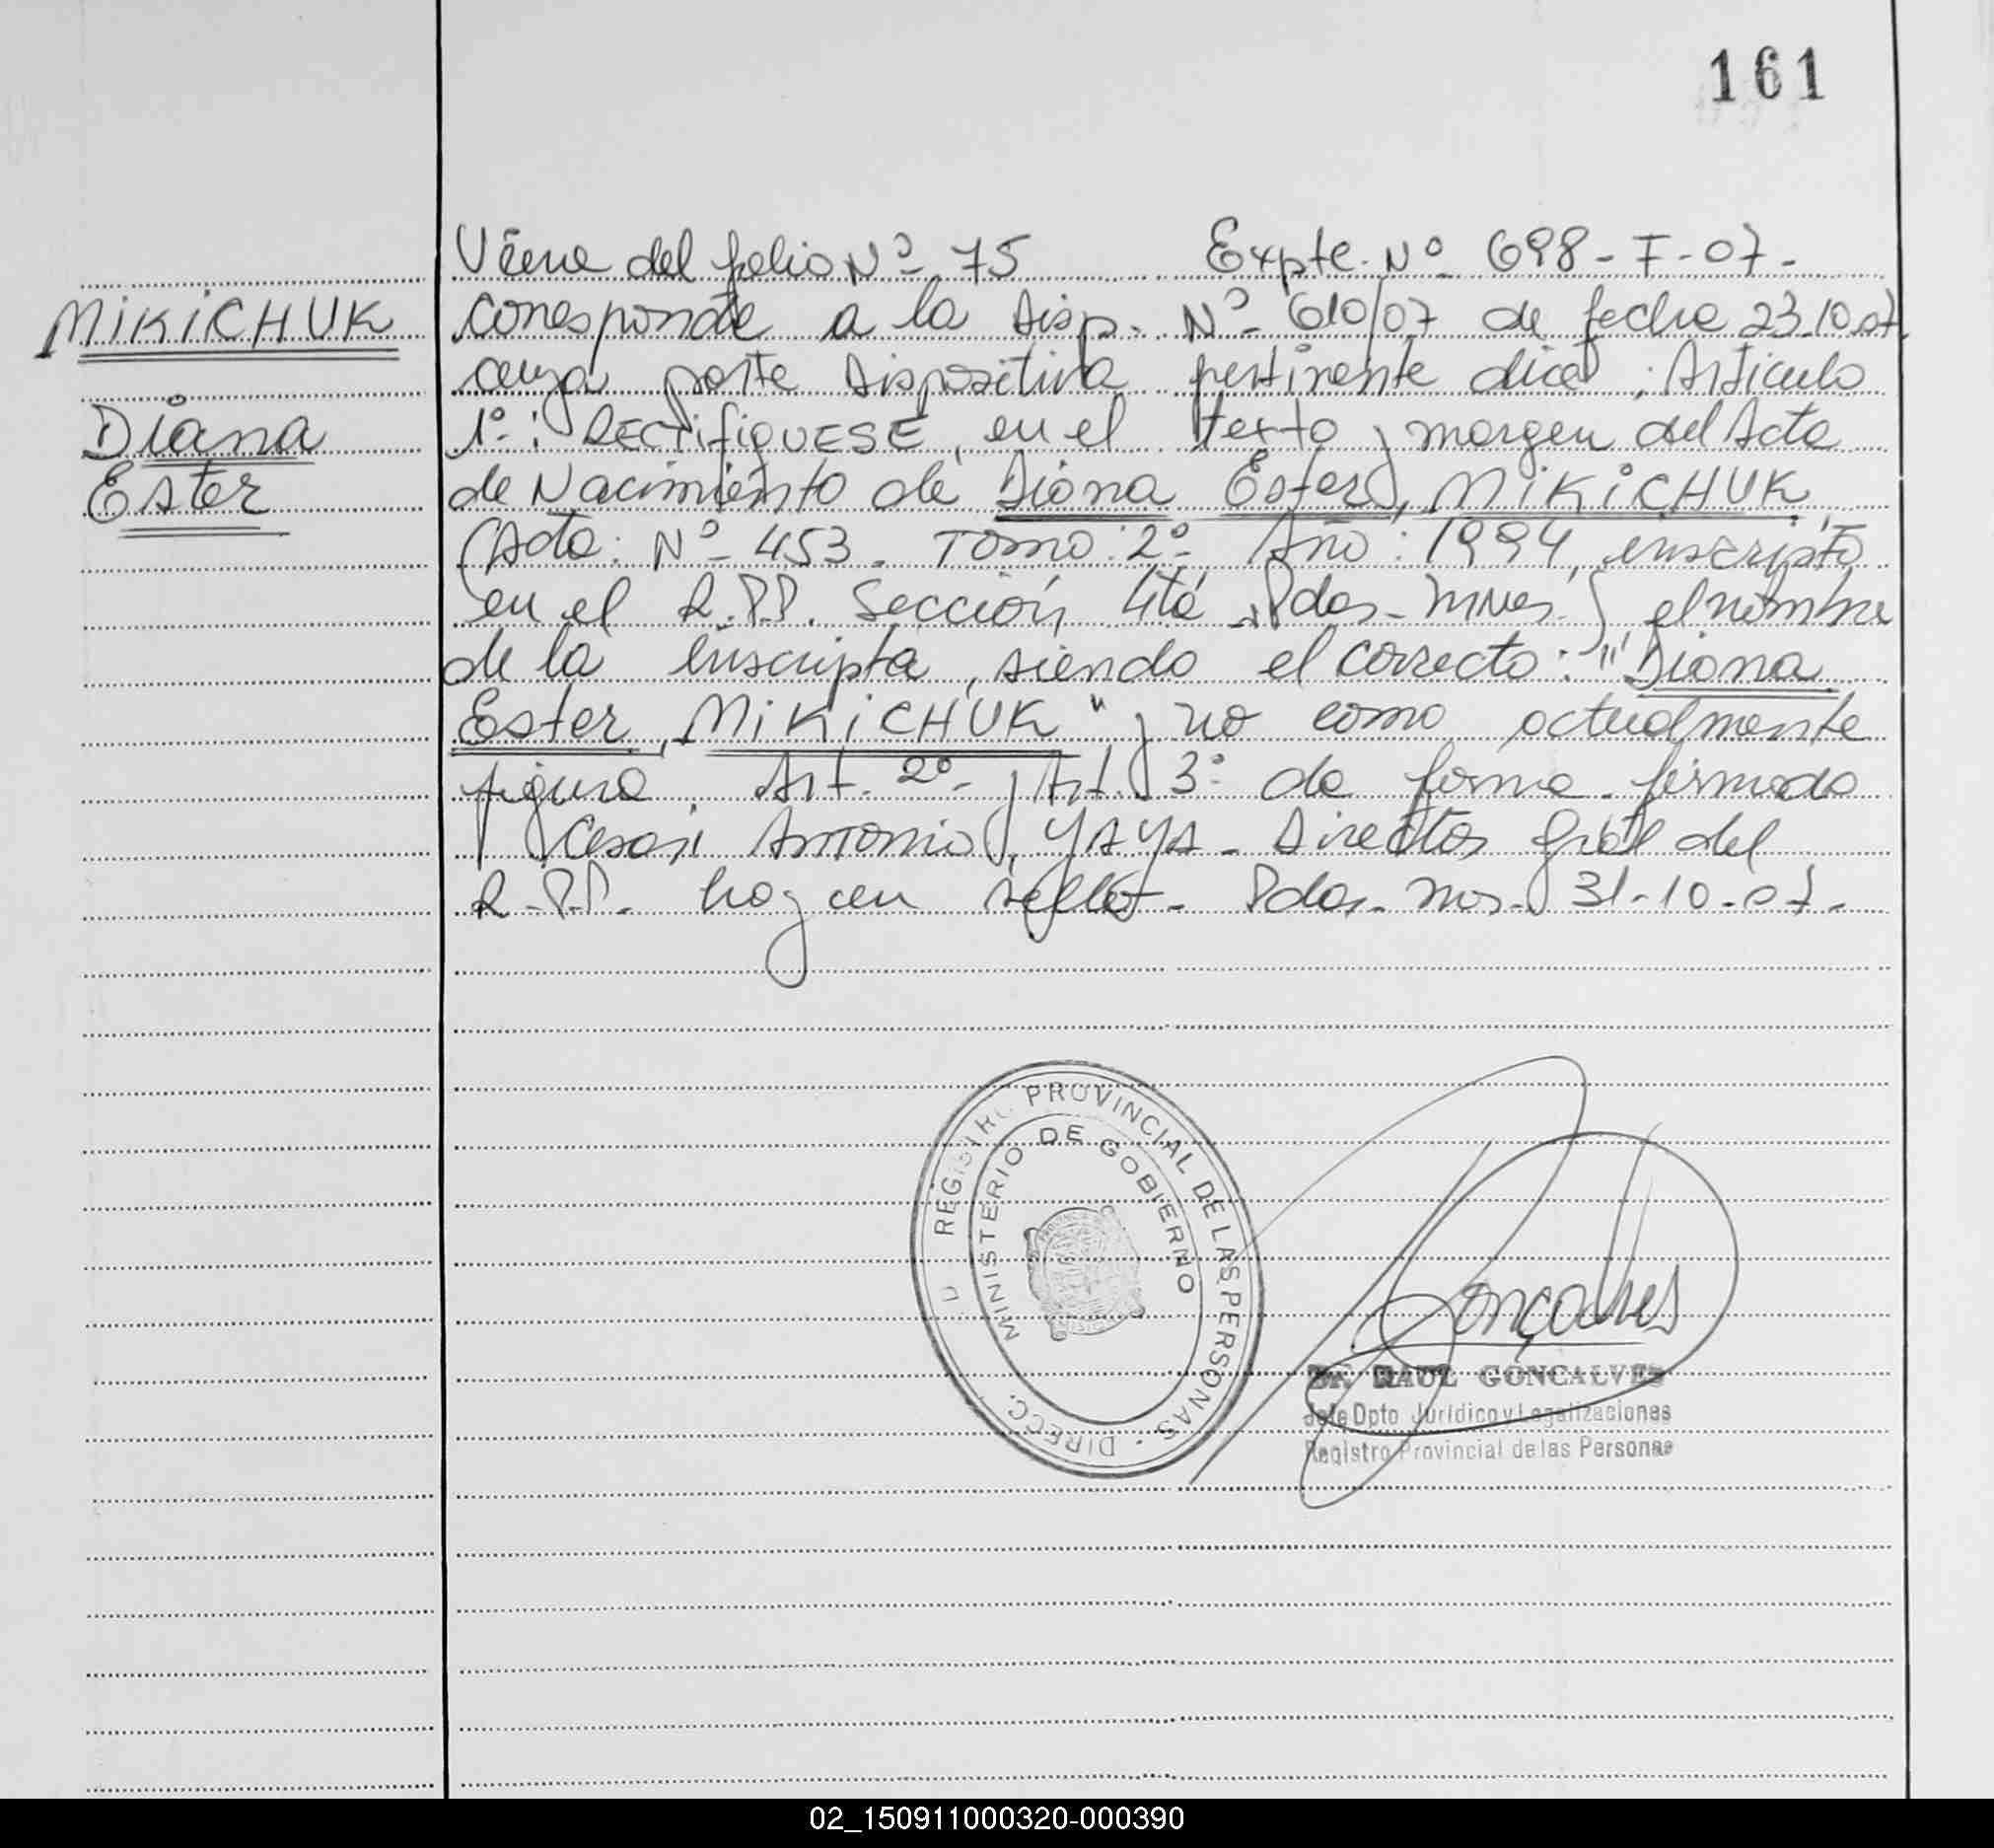 161
Viene del folio Nº 75 Expte. Nº 698-F-07-
MiKiCHUK
corresponde a la Disp. Nº 610/07 de fecha 23.10.07.
cuya parte dispositiva pertinente dice: Articulo
Diana
1º: RECTIFIQUESE, en el texto y margen del Acta
Ester
de Nacimiento de Diana Ester, MiKiCHUK,
(Acta: Nº 453. Tomo: 2º Año: 1994, inscripto
en el R.P.P. Sección 4ta Pdas-Mnes.), el nombre
de la inscripta, siendo el correcto: "Diana
Ester, MiKiCHUK" y no como actualmente
figura. Art. 2º- y Art. 3º de forma. firmado
Cesar Antonio, YAYA. Director Gral del
R.P.P. hay un sello. Pdas. Mns. 31-10-07.
REGISTRO PROVINCIAL DE LAS PERSONAS · DIRECC.
MINISTERIO DE GOBIERNO
Gonçalves
RAUL GONCALVES
Jefe Dpto Jurídico y Legalizaciones
Registro Provincial de las Personas
02_150911000320-000390